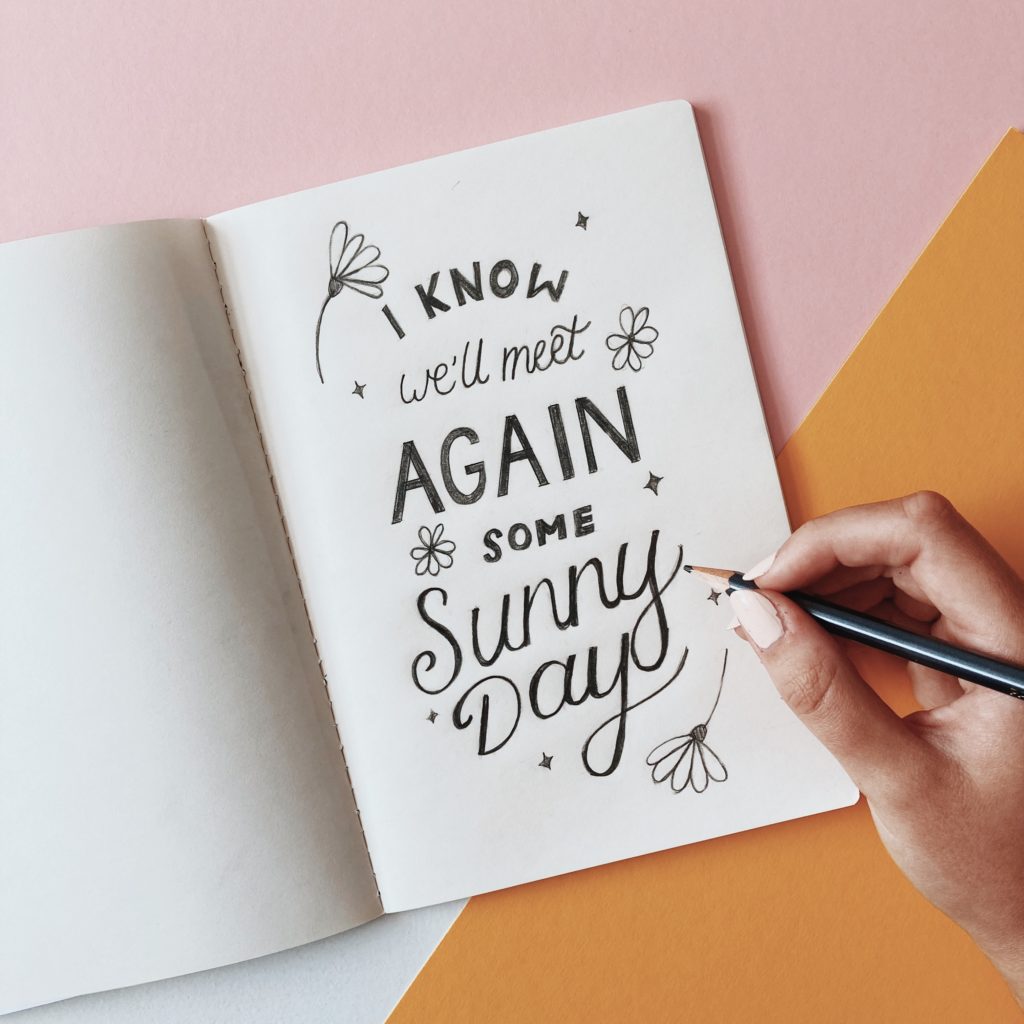 I KNOW
we'll meet
AGAIN
SOME
Sunny
Day